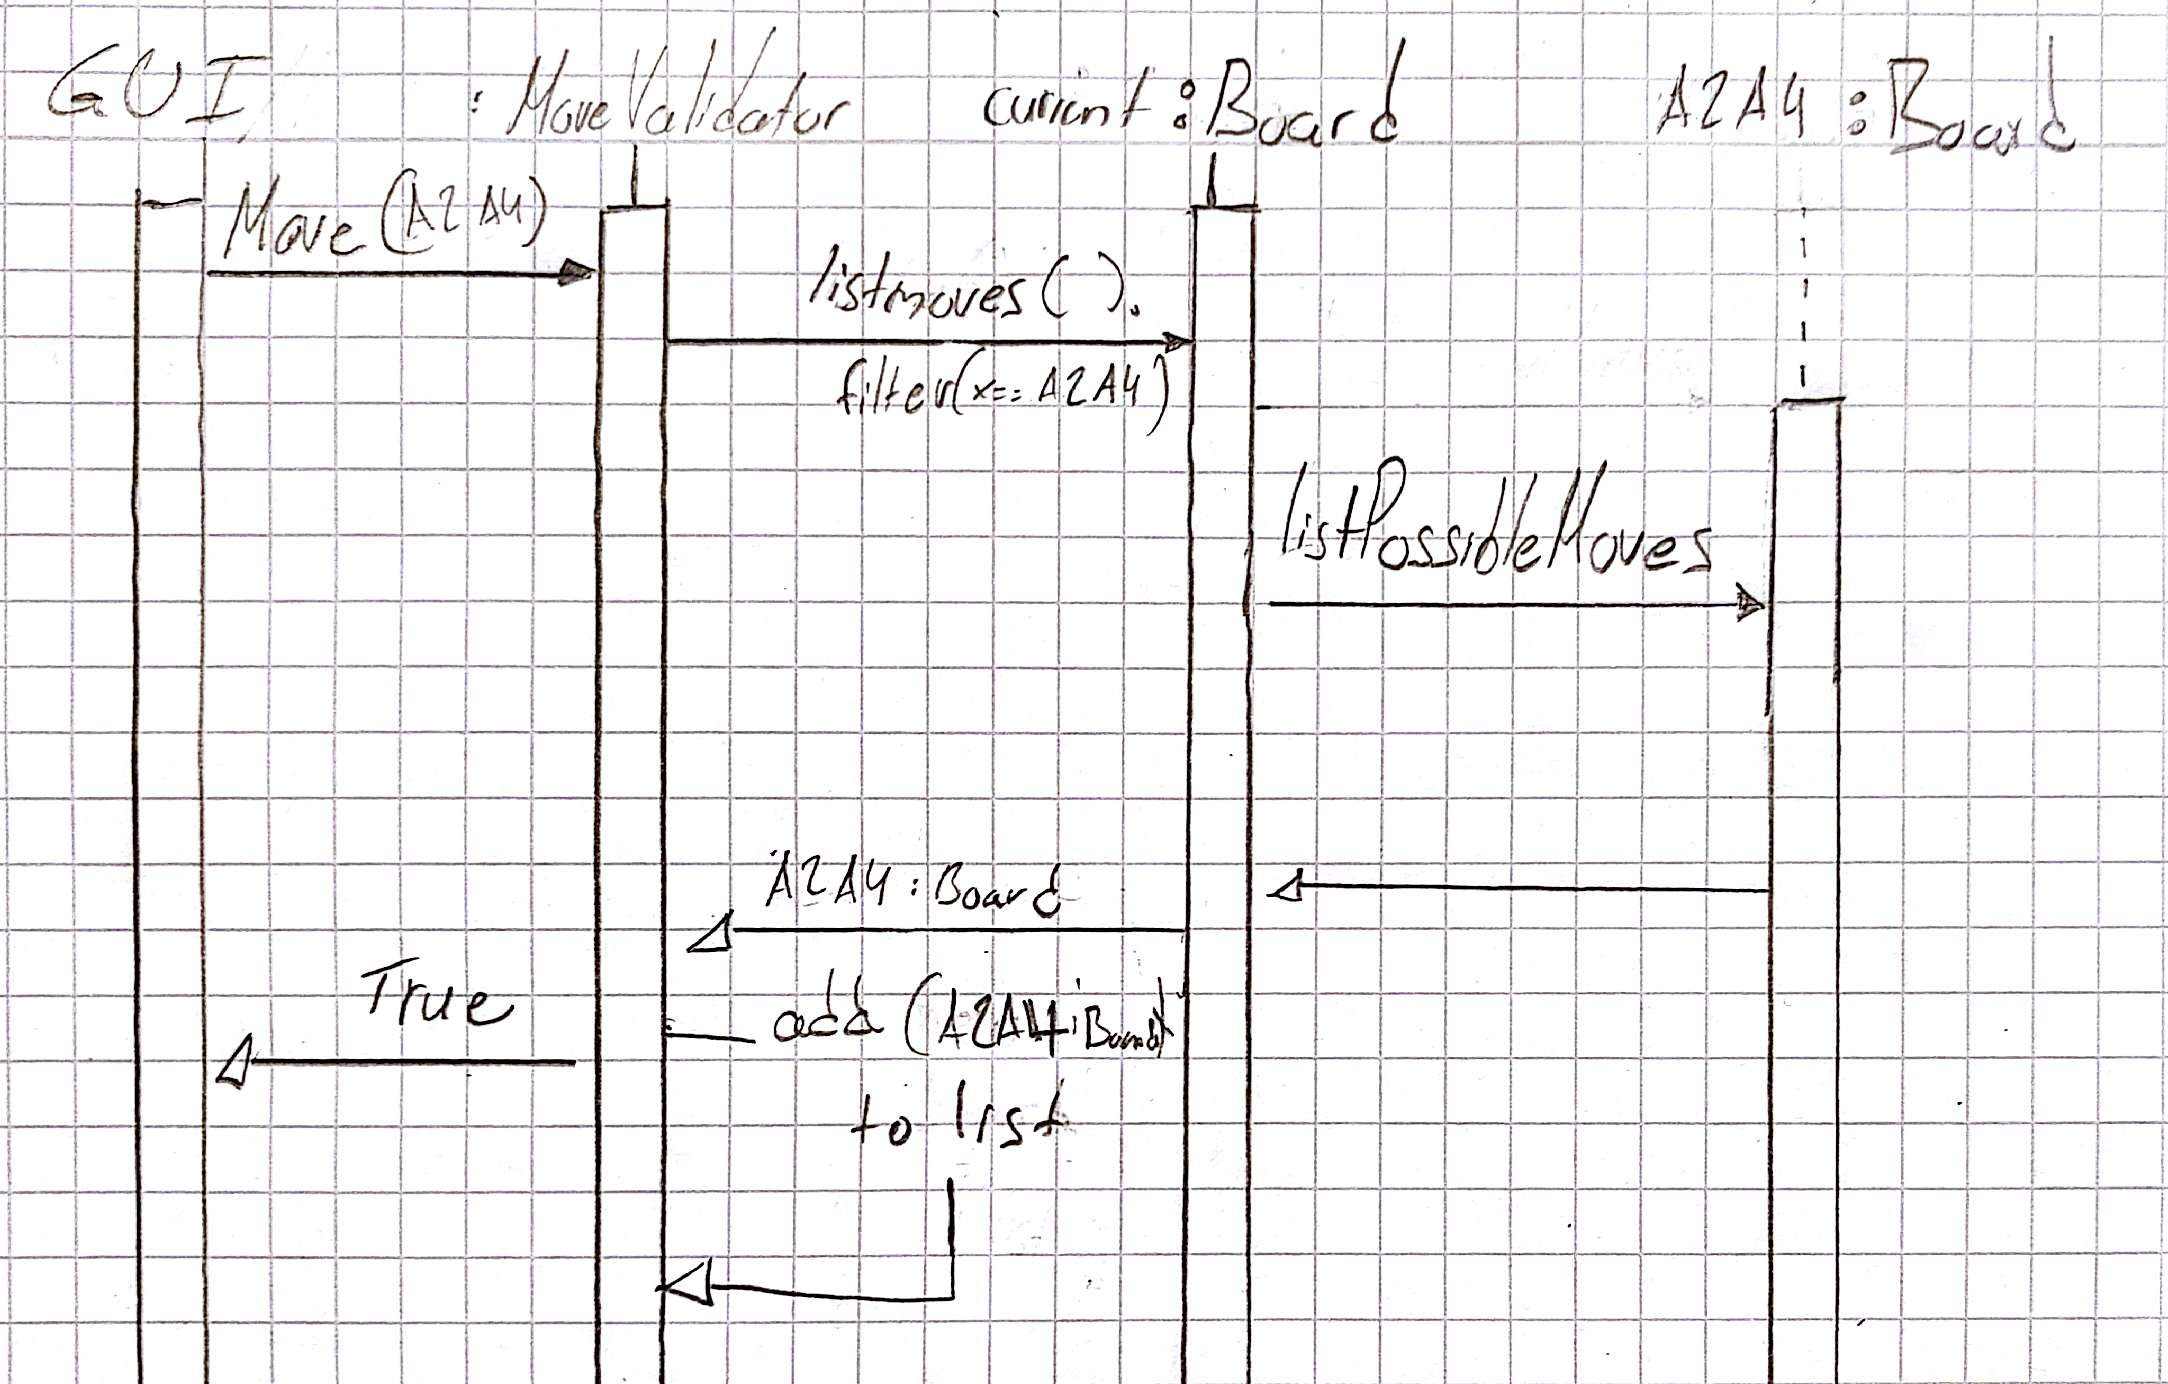 GUI : MoveValidator current : Board A2A4 : Board
Move (A2A4)
listmoves ( ).
filter(x== A2A4)
listPossibleMoves
A2A4 : Board
True
add (A2A4:Board)
to list